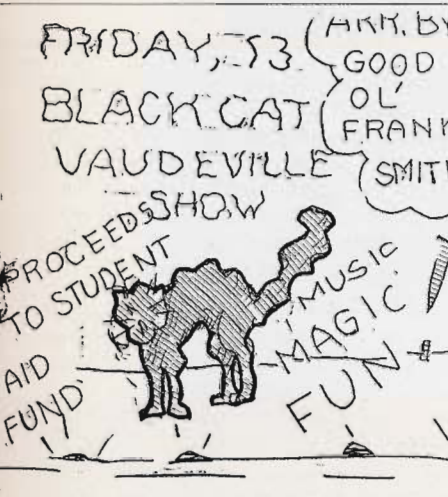 FRIDAY, 13
BLACK CAT
VAUDEVILLE
SHOW
GOOD
OL'
PROCEEDS
TO STUDENT
AID
FUND
MUSIC
MAGIC
FUN